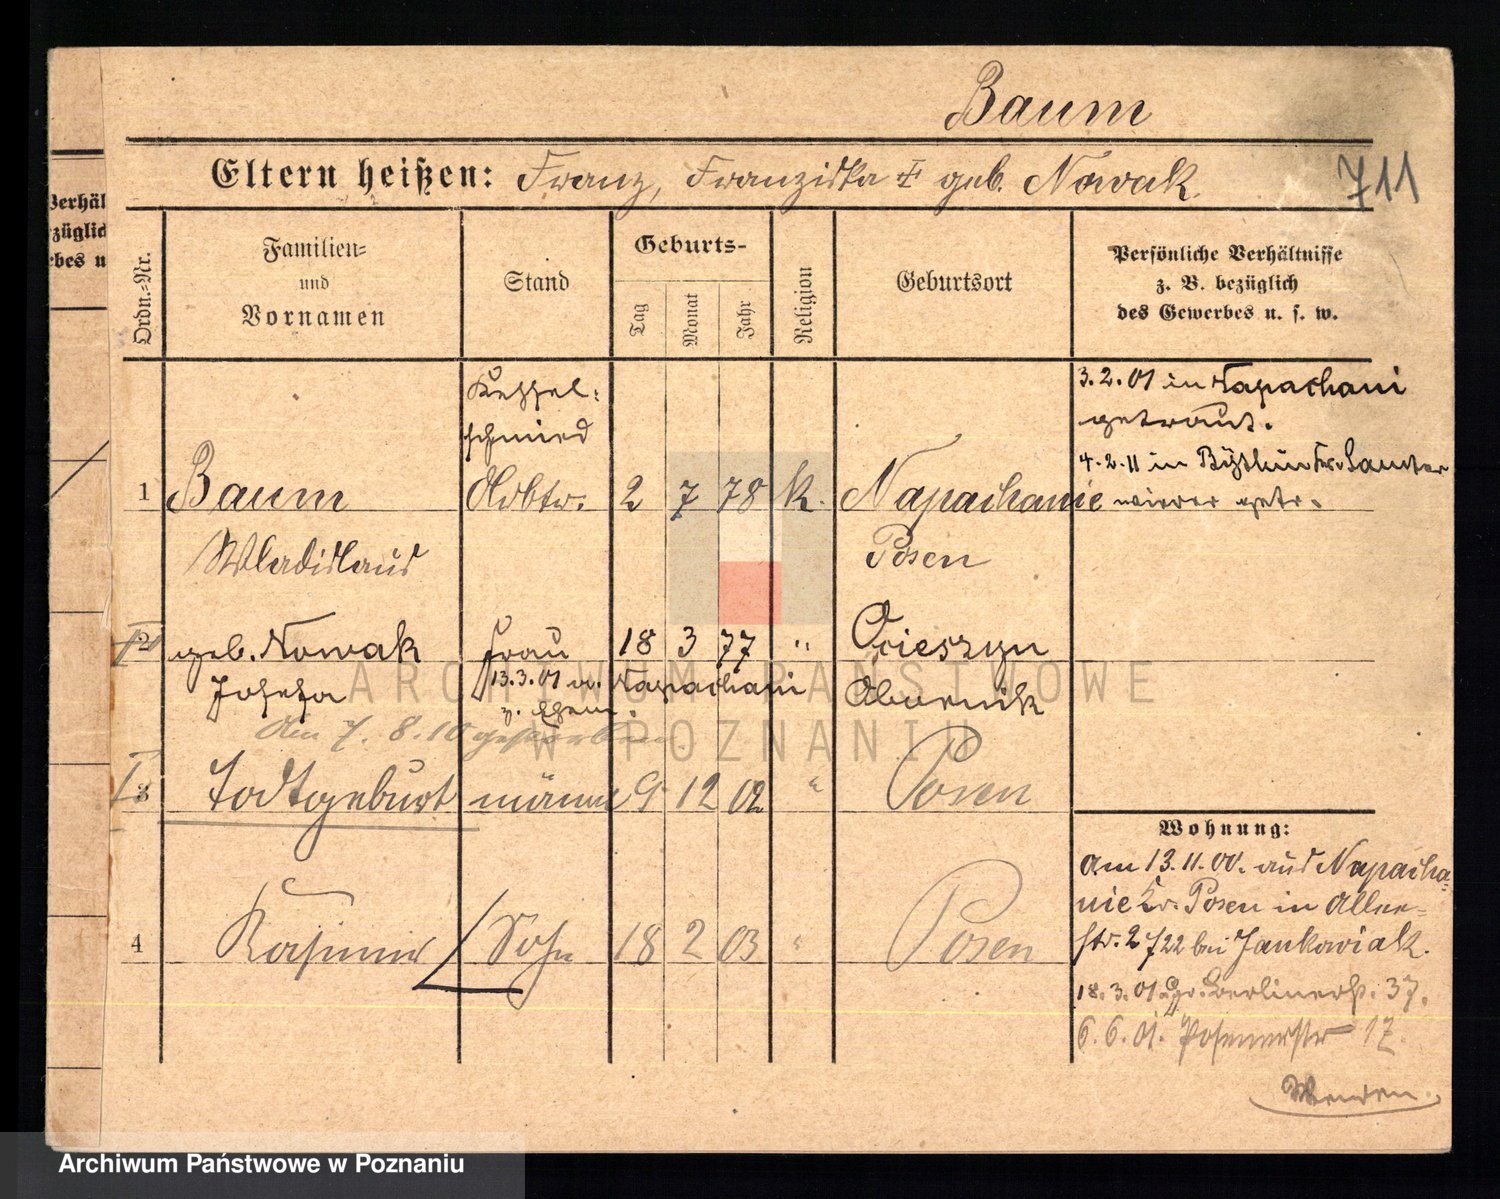 Baum
Eltern heißen: Franz, Franziska geb. Nowak
711
Verhäl
züglic
bes u
Ordn.-Nr.
Familien-
und
Vornamen
Stand
Geburts-
Tag
Monat
Jahr
Religion
Geburtsort
Persönliche Verhältnisse
z. B. bezüglich
des Gewerbes u. s. w.
Kessel-
schmied
3.2.01 in Napachani
getraut.
4.2.11 in Bythin Kr. Samter
wieder getr.
1 Baum Hdbtr. 2 7 78 k. Napachanie
Wladislaus Posen
2 geb. Nowak Frau 18 3 77 " Ocieszyn
Josefa 13.3.01 v. Napachani Obornik
z. Ehem.
Am 7. 8. 10 gestorben.
3 Todtgeburt männl 9 12 02 " Posen
4 Kasimir Sohn 18 2 03 " Posen
Wohnung:
Am 13.11.00. aus Napacha-
nie Kr. Posen in Allee-
str. 2 722 bei Jankowiak.
18.3.01 Gr. Berlinerst. 37.
6.6.01. Posenerstr 17.
Wenden.
ARCHIWUM PAŃSTWOWE
W POZNANIU
Archiwum Państwowe w Poznaniu